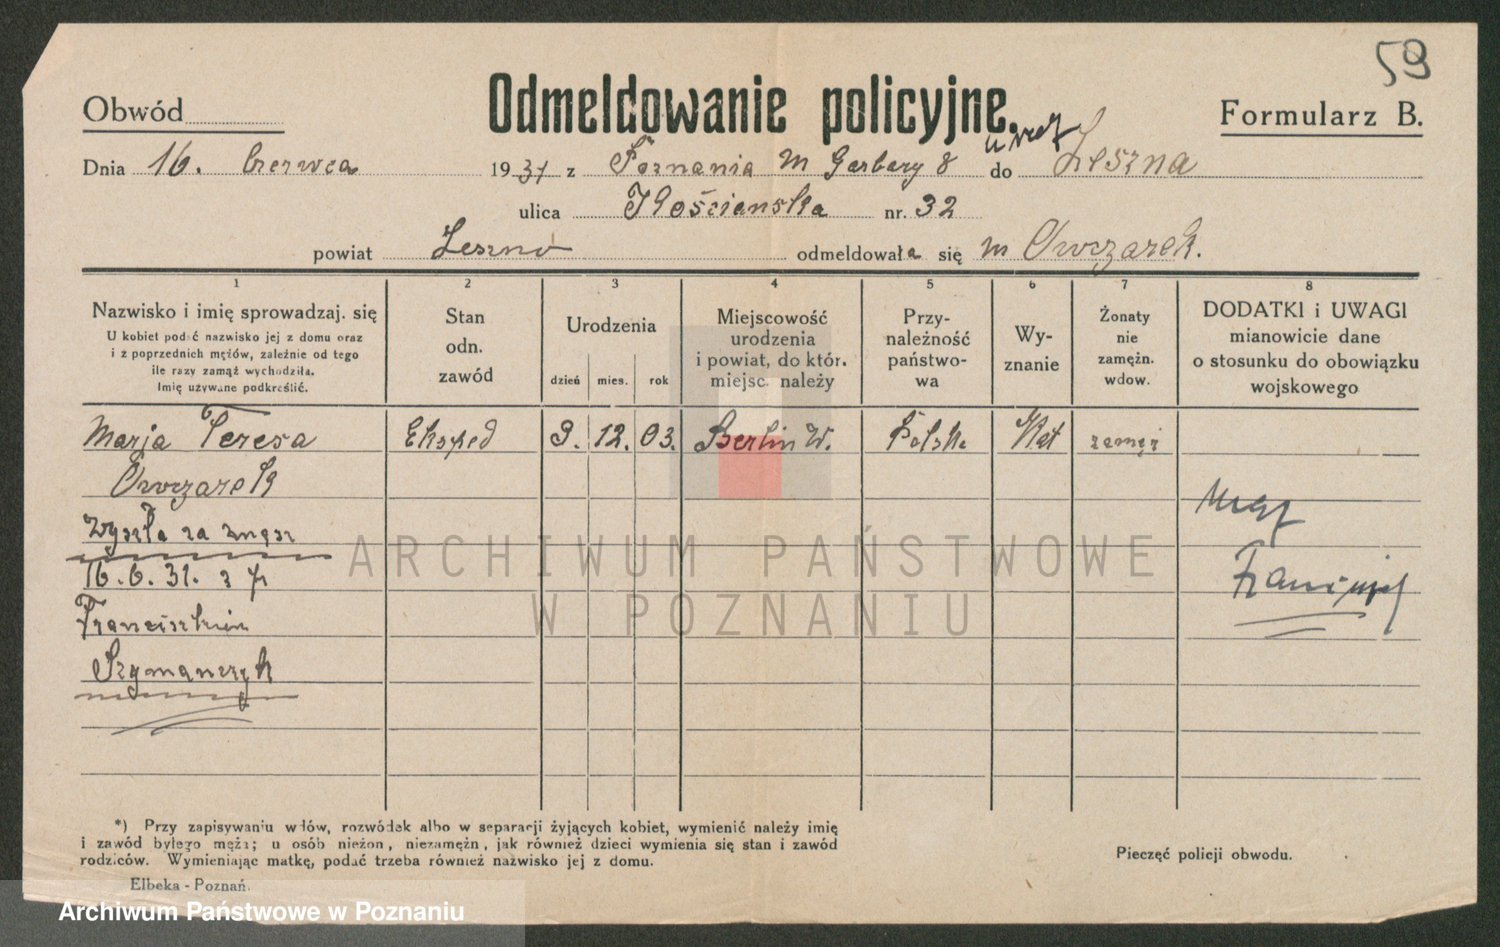 59
Obwód
Odmeldowanie policyjne.
Formularz B.
Dnia 16. Czerwca 1931 z Poznania m Garbary 8 do Leszna
ulica Kościanska nr. 32
powiat Leszno odmeldowała się m Owczarek.
1 2 3 4 5 6 7 8
Nazwisko i imię sprowadzaj. się
U kobiet podać nazwisko jej z domu oraz
i z poprzednich mężów, zależnie od tego
ile razy zamąż wychodziła.
Imię używane podkreślić.
Stan
odn.
zawód
Urodzenia
dzień mies. rok
Miejscowość
urodzenia
i powiat, do któr.
miejsc. należy
Przy-
należność
państwo-
wa
Wy-
znanie
Żonaty
nie
zamężn.
wdow.
DODATKI i UWAGI
mianowicie dane
o stosunku do obowiązku
wojskowego
Marja Teresa Eksped 9. 12. 03. Berlin W. Polska Kat zamęż
Owczarek
wyszła za mąsz
16.6.31. z p
Franciszkiem
Szymanczyk
ARCHIWUM PAŃSTWOWE
W POZNANIU
*) Przy zapisywaniu wdów, rozwódek albo w separacji żyjących kobiet, wymienić należy imię
i zawód byłego męża; u osób nieżon, niezamężn, jak również dzieci wymienia się stan i zawód
rodziców. Wymieniając matkę, podać trzeba również nazwisko jej z domu.
Pieczęć policji obwodu.
Elbeka - Poznań.
Archiwum Państwowe w Poznaniu